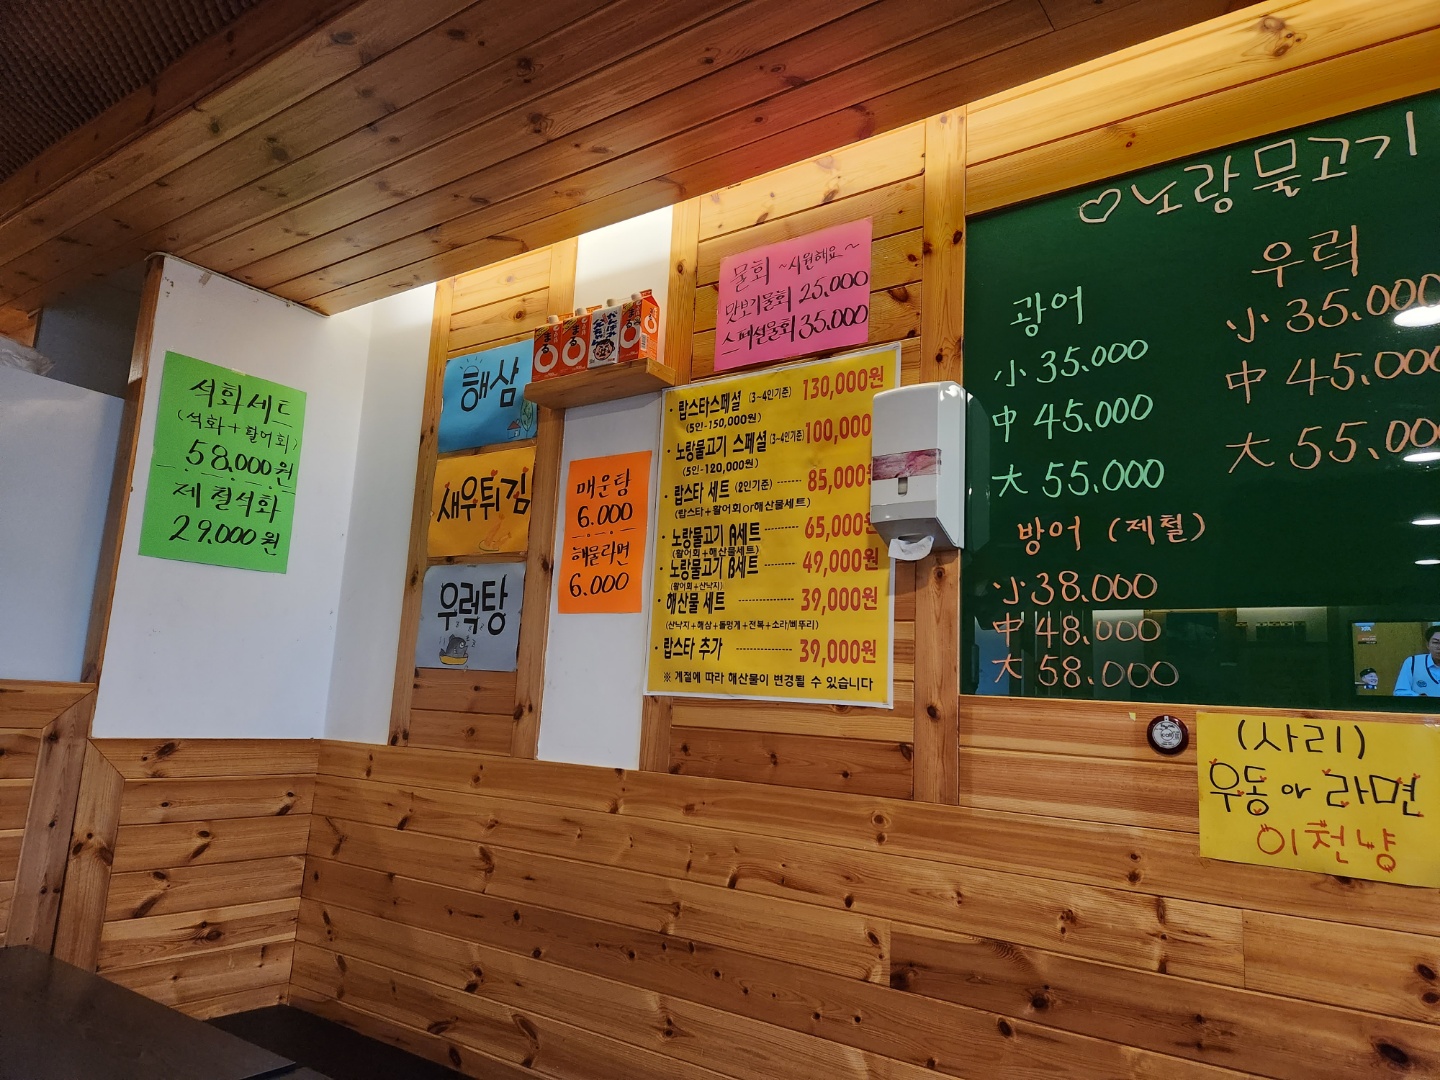 석화세트
(석화+활어회)
58,000원
제철석화
29,000원
해삼
새우튀김
우럭탕
매운탕
6.000
해물라면
6.000
물회 ~시원해요~
맛보기물회 25,000
스페셜물회 35,000
· 랍스타스페셜 (3~4인기준) 130,000원
(5인-150,000원)
· 노랑물고기 스페셜 (3~4인기준) 100,000
(5인-120,000원)
· 랍스타 세트 (2인기준) -------- 85,000원
(랍스타+활어회or해산물세트)
· 노랑물고기 A세트 --------- 65,000원
(활어회+해산물세트)
· 노랑물고기 B세트 --------- 49,000원
(활어회+산낙지)
· 해산물 세트 -------------- 39,000원
(산낙지+해삼+돌멍게+전복+소라/삐뚜리)
· 랍스타 추가 -------------- 39,000원
※ 계절에 따라 해산물이 변경될 수 있습니다
♡노랑물고기
광어
小 35.000
中 45.000
大 55.000
우럭
小 35.000
中 45.000
大 55.00
방어 (제철)
小 38.000
中 48.000
大 58.000
(사리)
우동 or 라면
이천냥